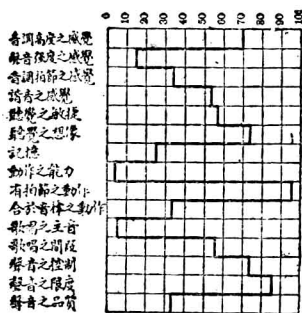 0 10 20 30 40 50 60 70 80 90 100
音調高度之感覺
聲音強度之感覺
音調拍節之感覺
諧音之感覺
聽覺之敏捷
聽覺之想像
記憶
動作之能力
有拍節之動作
合於音律之動作
歌唱之主音
歌唱之間段
聲音之控制
聲音之限度
聲音之品質